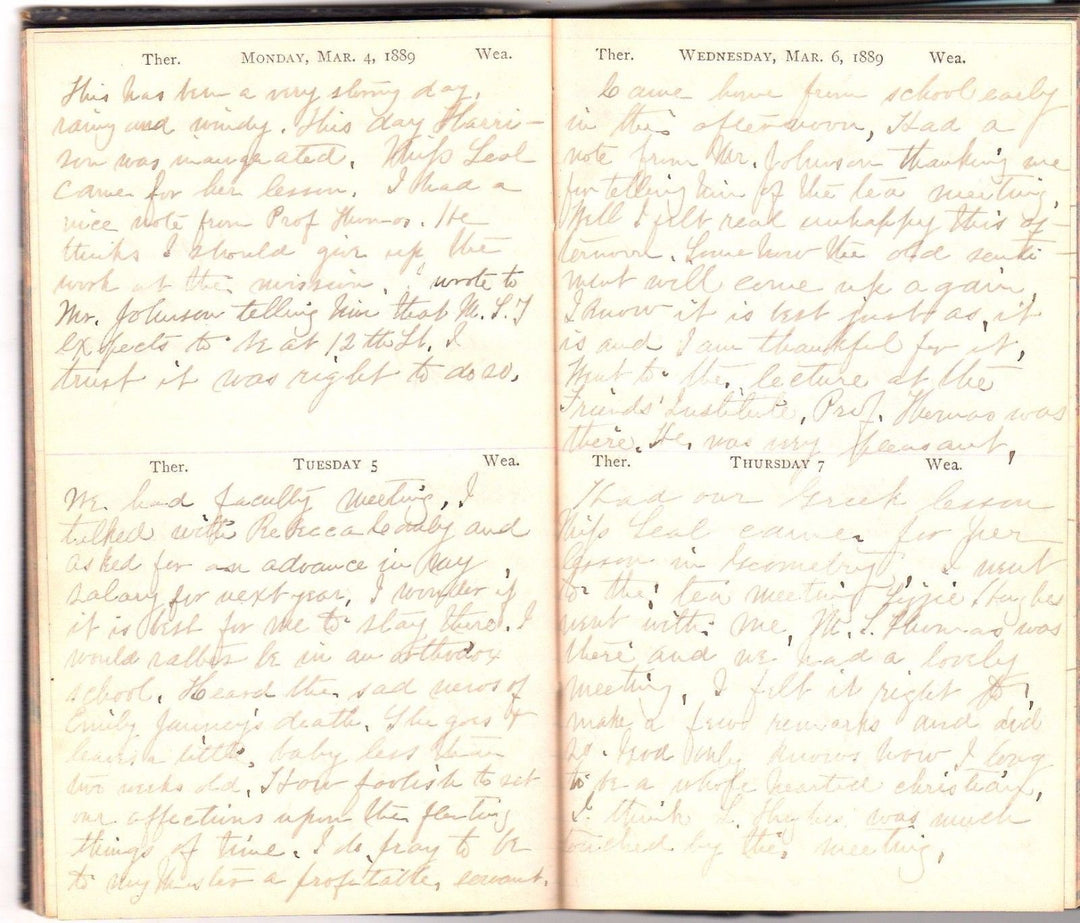 Ther. MONDAY, MAR. 4, 1889 Wea.
This has been a very stormy day,
rainy and windy. This day Harri-
son was inaugurated. Miss Leal
came for her lesson. I had a
nice note from Prof Thomas. He
thinks I should give up the
work at the mission. I wrote to
Mr. Johnson telling him that M. L. T
expects to be at 12th St. I
trust it was right to do so.
Ther. TUESDAY 5 Wea.
We had faculty meeting. I
talked with Rebecca and
asked for an advance in my
salary for next year. I wonder if
it is best for me to stay there. I
would rather be in an orthodox
school. Heard the sad news of
Emily Janney's death. She goes &
leaves a little baby less than
two weeks old. How foolish to set
our affections upon the fleeting
things of time. I do pray to be
to my Master a profitable servant.
Ther. WEDNESDAY, MAR. 6, 1889 Wea.
Came home from school early
in the afternoon, Had a
note from Mr. Johnson thanking me
for telling him of the tea meeting.
Well I felt real unhappy this af-
ternoon. Somehow the old senti-
ment will come up again,
I know it is best just as it
is and I am thankful for it.
Went to the lecture at the
Friends' Institute, Prof. Thomas was
there. He was very pleasant.
Ther. THURSDAY 7 Wea.
Had our Greek lesson
Miss Leal came for her
lesson in Geometry. I went
to the tea meeting Lizzie Hughes
went with me, M. L. Thomas was
there and we had a lovely
meeting, I felt it right to
make a few remarks and did
so. God only knows how I long
to be a whole hearted christian,
I think L. Hughes was much
touched by the meeting.